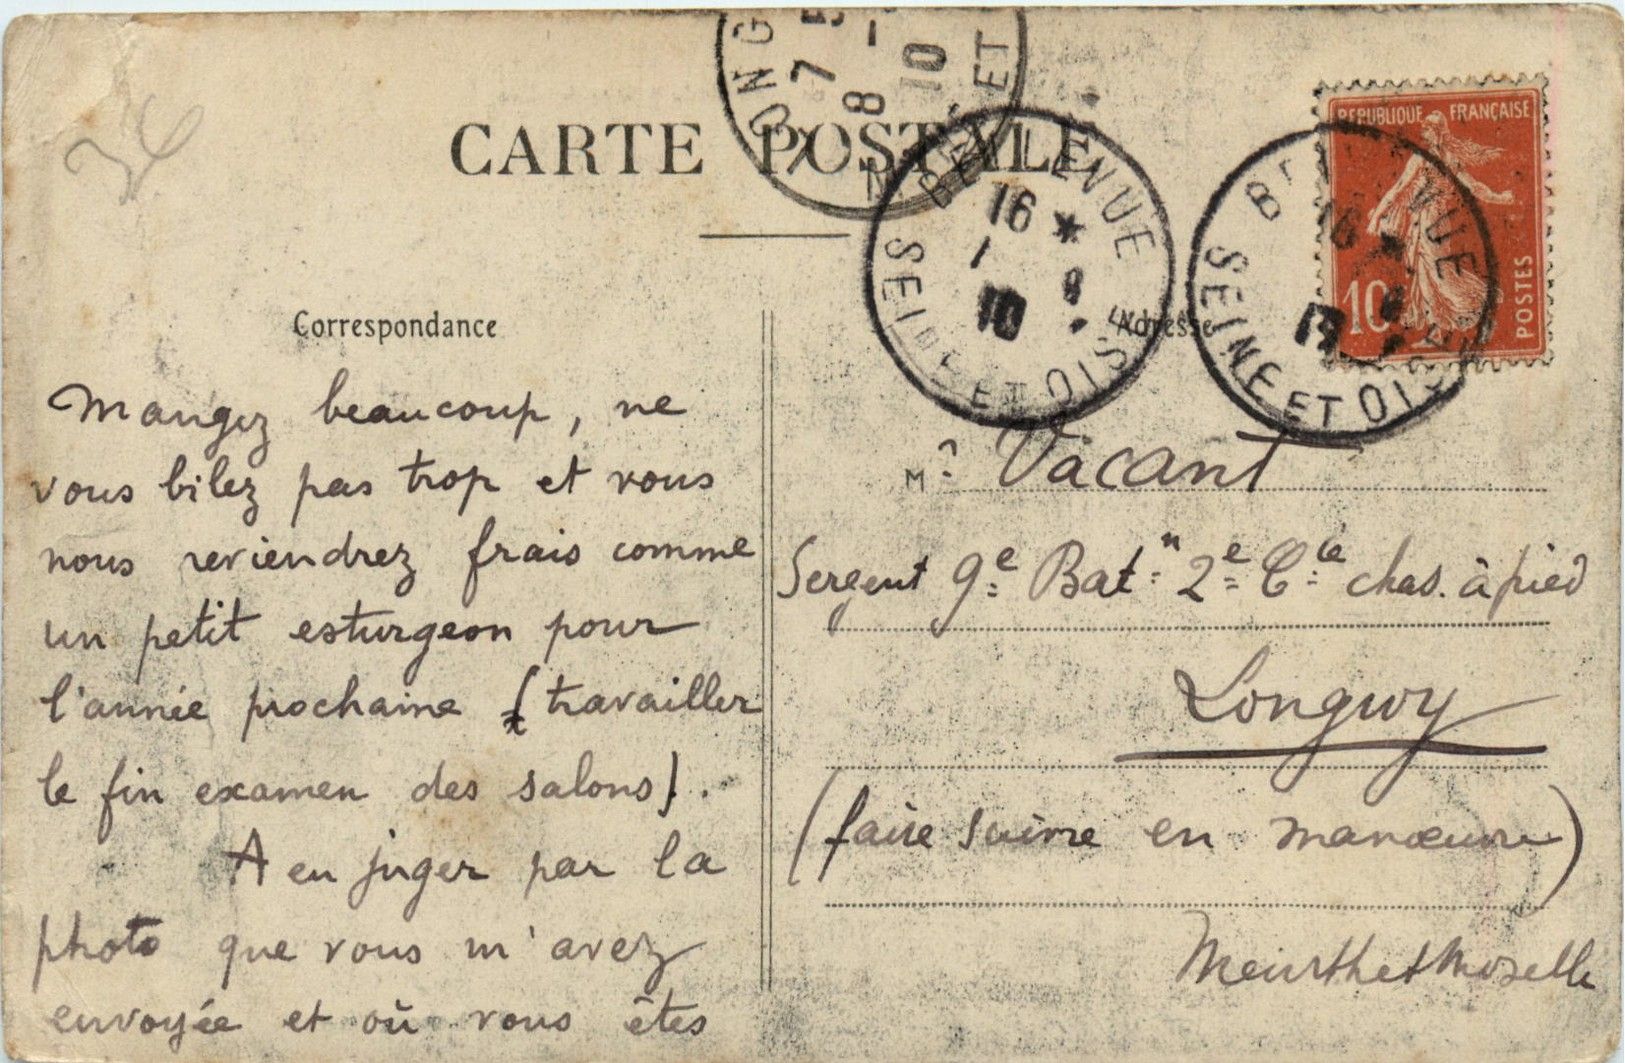 34
CARTE POSTALE
LONG
7 8 10
ET
BELLEVUE
16 *
1 8
10
SEINE ET OISE
BELLEVUE
16 *
SEINE ET OISE
REPUBLIQUE FRANÇAISE
10
POSTES
Correspondance
Mangez beaucoup, ne
vous bilez pas trop et vous
nous reviendrez frais comme
un petit esturgeon pour
l'année prochaine (travailler
le fin examen des salons).
A en juger par la
photo que vous m'avez
envoyée et où vous êtes
Adresse
Mr Vacant
Sergent 9e Batn 2e Cie chas. à pied
Longwy
(faire suivre en manœuvre)
Meurthe et Moselle